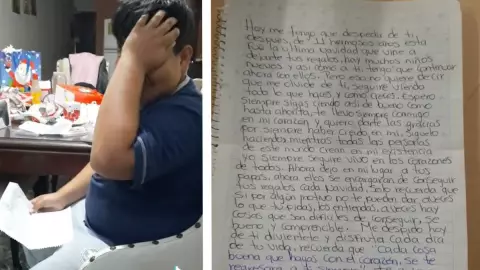 Hoy me tengo que despedir de ti,
despues de 11 hermosos años esta
fue la ultima navidad que vine a
dejarte tus regalos, hay muchos niños
nuevos y asi como a ti tengo que continuar
ahora con ellos. Pero eso no quiere decir
que me olvide de ti, seguire viendo
todo lo que haces, y como creces. Espero
siempre sigas siendo asi de bueno como
hasta ahorita, te llevo siempre conmigo
en mi corazon y quiero darte las gracias
por siempre haber creido en mi, siguelo
haciendo, mientras todas las personas
de este mundo crean en mi existencia
yo siempre seguire vivo en los corazones
de todos. Ahora dejo en mi lugar a tus
papas, ahora ellos se encargaran de conseguir
tus regalos cada navidad. Solo recuerda que
si por algun motivo no te pueden dar aveces
lo que tu pidas, los entiendas, aveces hay
cosas que son dificiles de conseguir, se
bueno y comprensible. Me despido hoy
de ti diviertete y disfruta cada dia
de tu vida, recuerda que "Cada cosa
buena que hagas con el corazon, se te
regresara